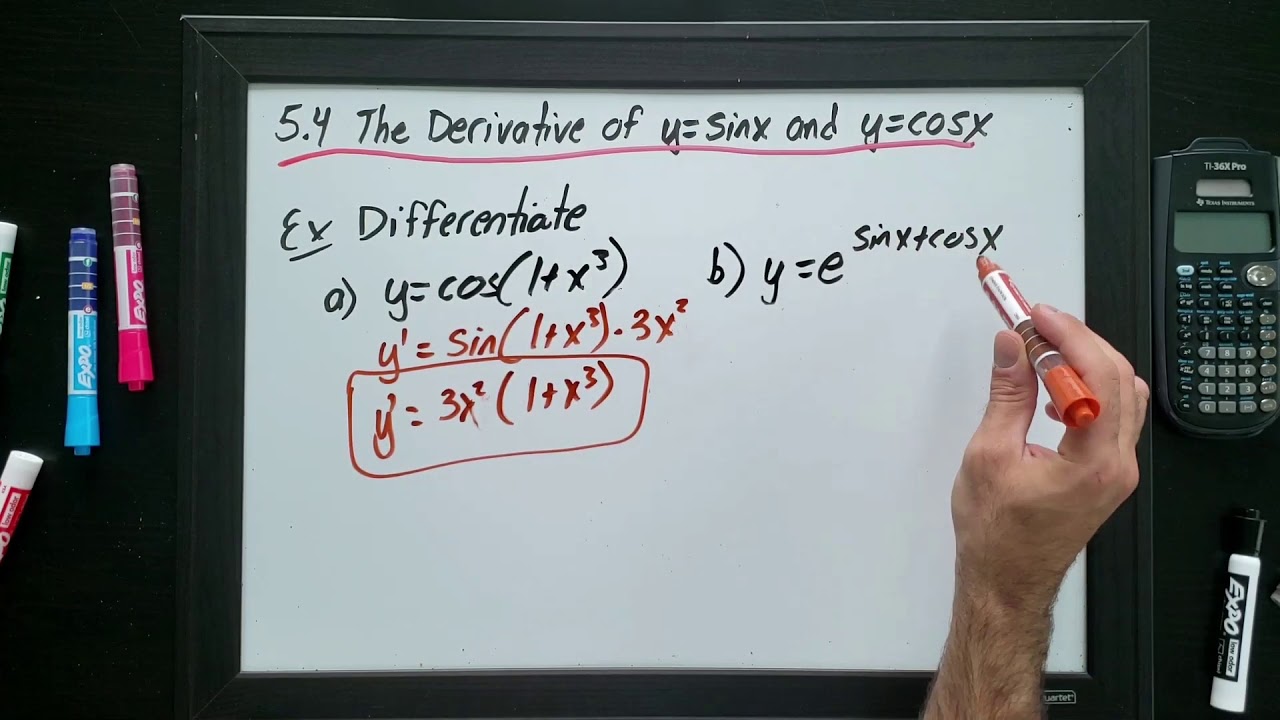 5.4 The Derivative of y=sinx and y=cosx
Ex Differentiate
a) y=cos(1+x³)
y'=sin(1+x³)·3x²
y'=3x²(1+x³)
b) y=e^sinx+cosx
TI-36X Pro
TEXAS INSTRUMENTS
EXPO
EXPO
EXPO
low odor
uartet